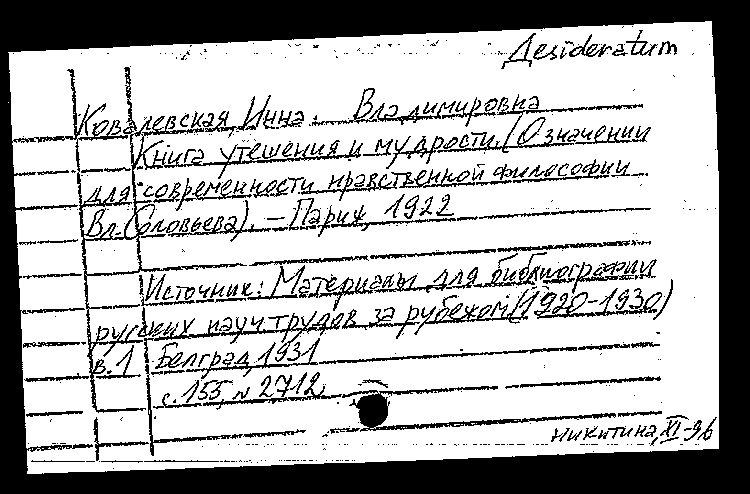 Desideratum
Ковалевская, Инна. Владимировна
Книга утешения и мудрости. (О значении
для современности нравственной философии
Вл. Соловьева). – Париж, 1922
Источник: Материалы для библиографии
русских науч трудов за рубежом (1920-1930)
в.1 Белград, 1931
с.155, N 2712
Никитина, XI-96